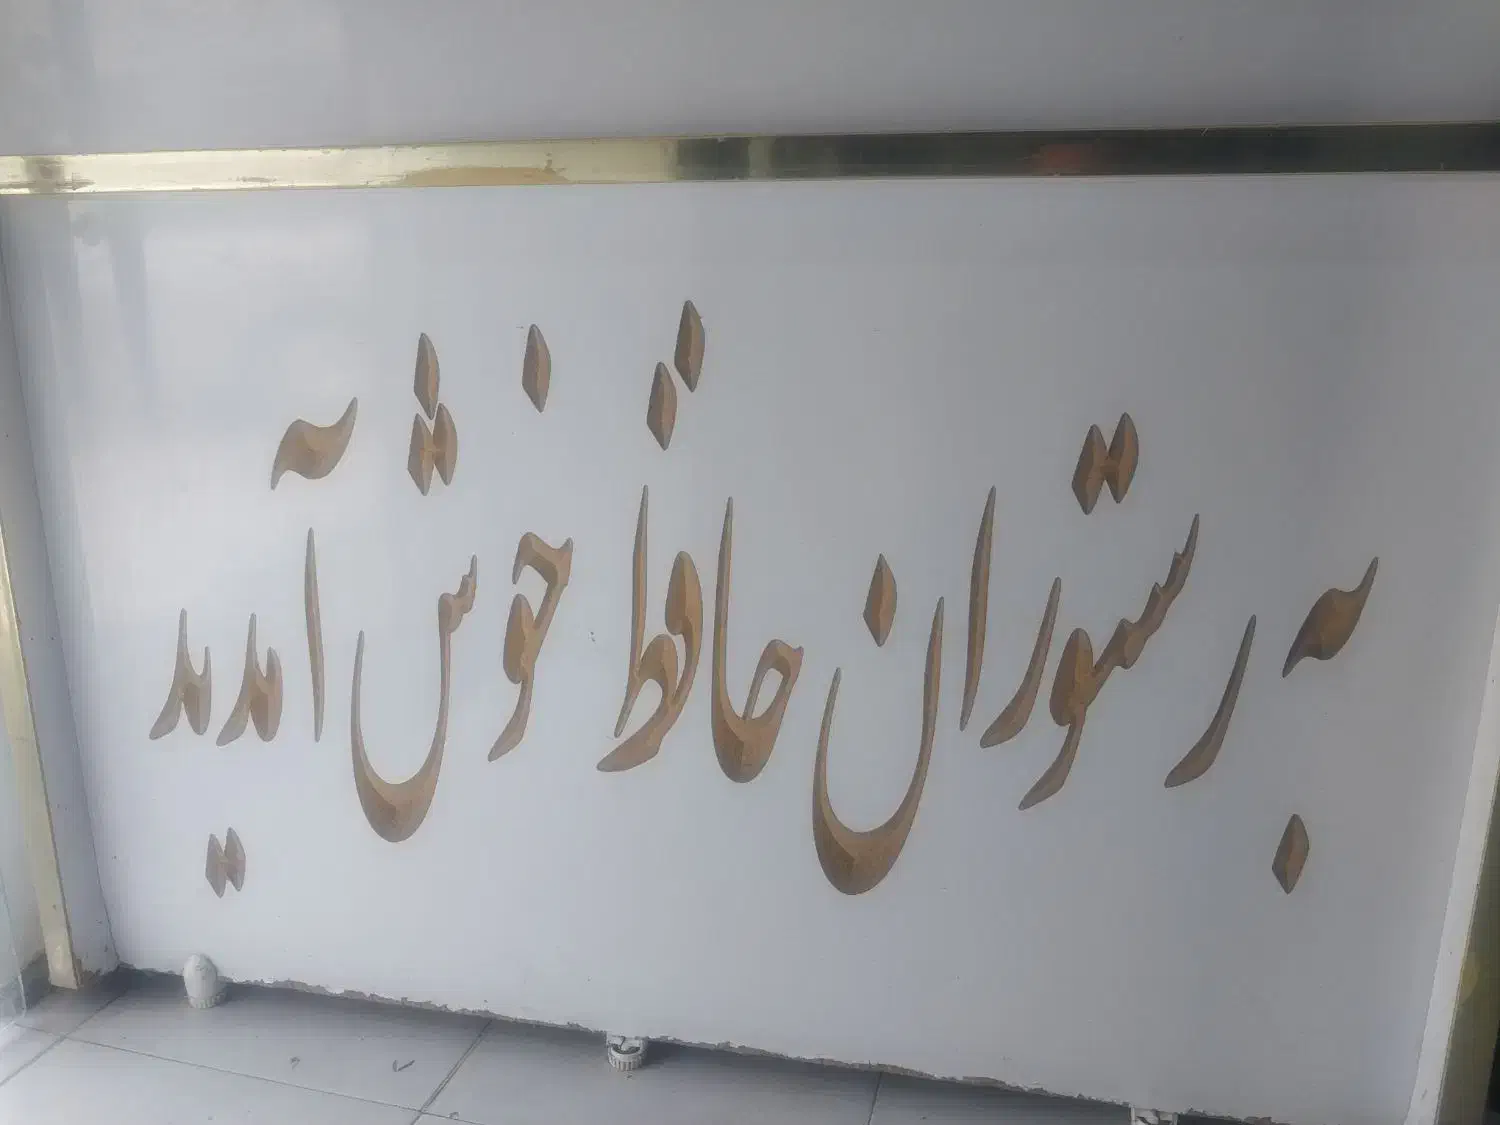 به رستوران حافظ خوش آمدید